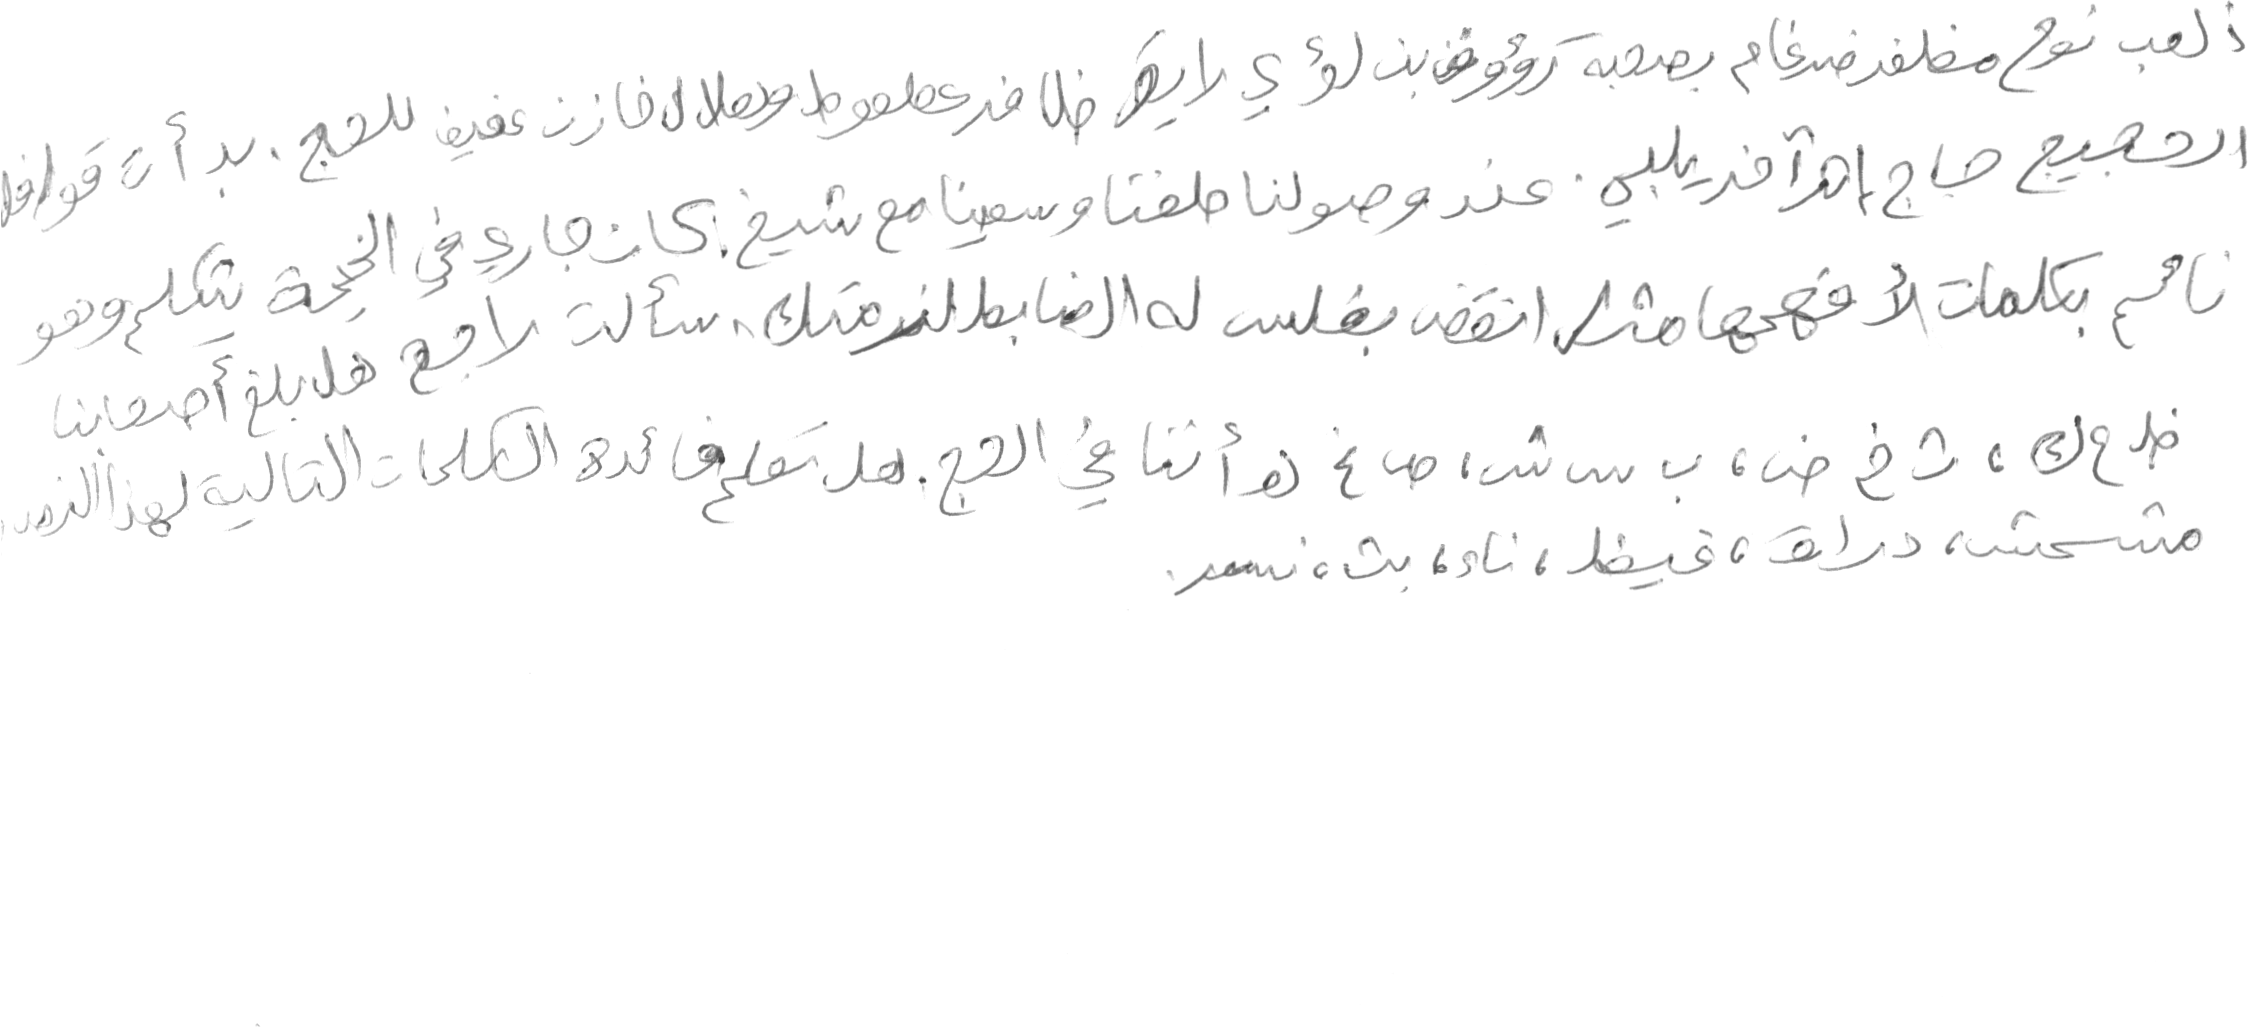 ذهب نوح مظفر ضرغام بصحبة رؤوف بن لؤي رايق ظافر عطعوط وهلال خازن عفيف للحج. بدأت قوافل
الحجيج حاج إثر آخر يلبي. عند وصولنا طفنا وسعينا مع شيخ. كان جاري في الخيمة يتكلم وهو
نائم بكلمات لا أفهمها مثل انقض بغلس له الضابط لنرمتك. سألت راجع هل بلغ أصحابنا
ظ ع ك، ث خ ض، ب س ش، ص غ ه أننا في الحج. هل تعلم فائدة الكلمات التالية لهذا النص،
مشمش، دراق، غيظ، ناء، بث، نسر.